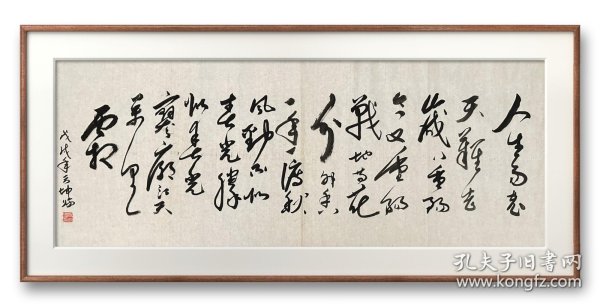 人生易老
天難老
歲歲重陽
今又重陽
戰地黄花
分外香
一年一度秋
風勁不似
春光勝
似春光
寥廓江天
萬里
霜
戊戌年
孔夫子旧书网
www.kongfz.com